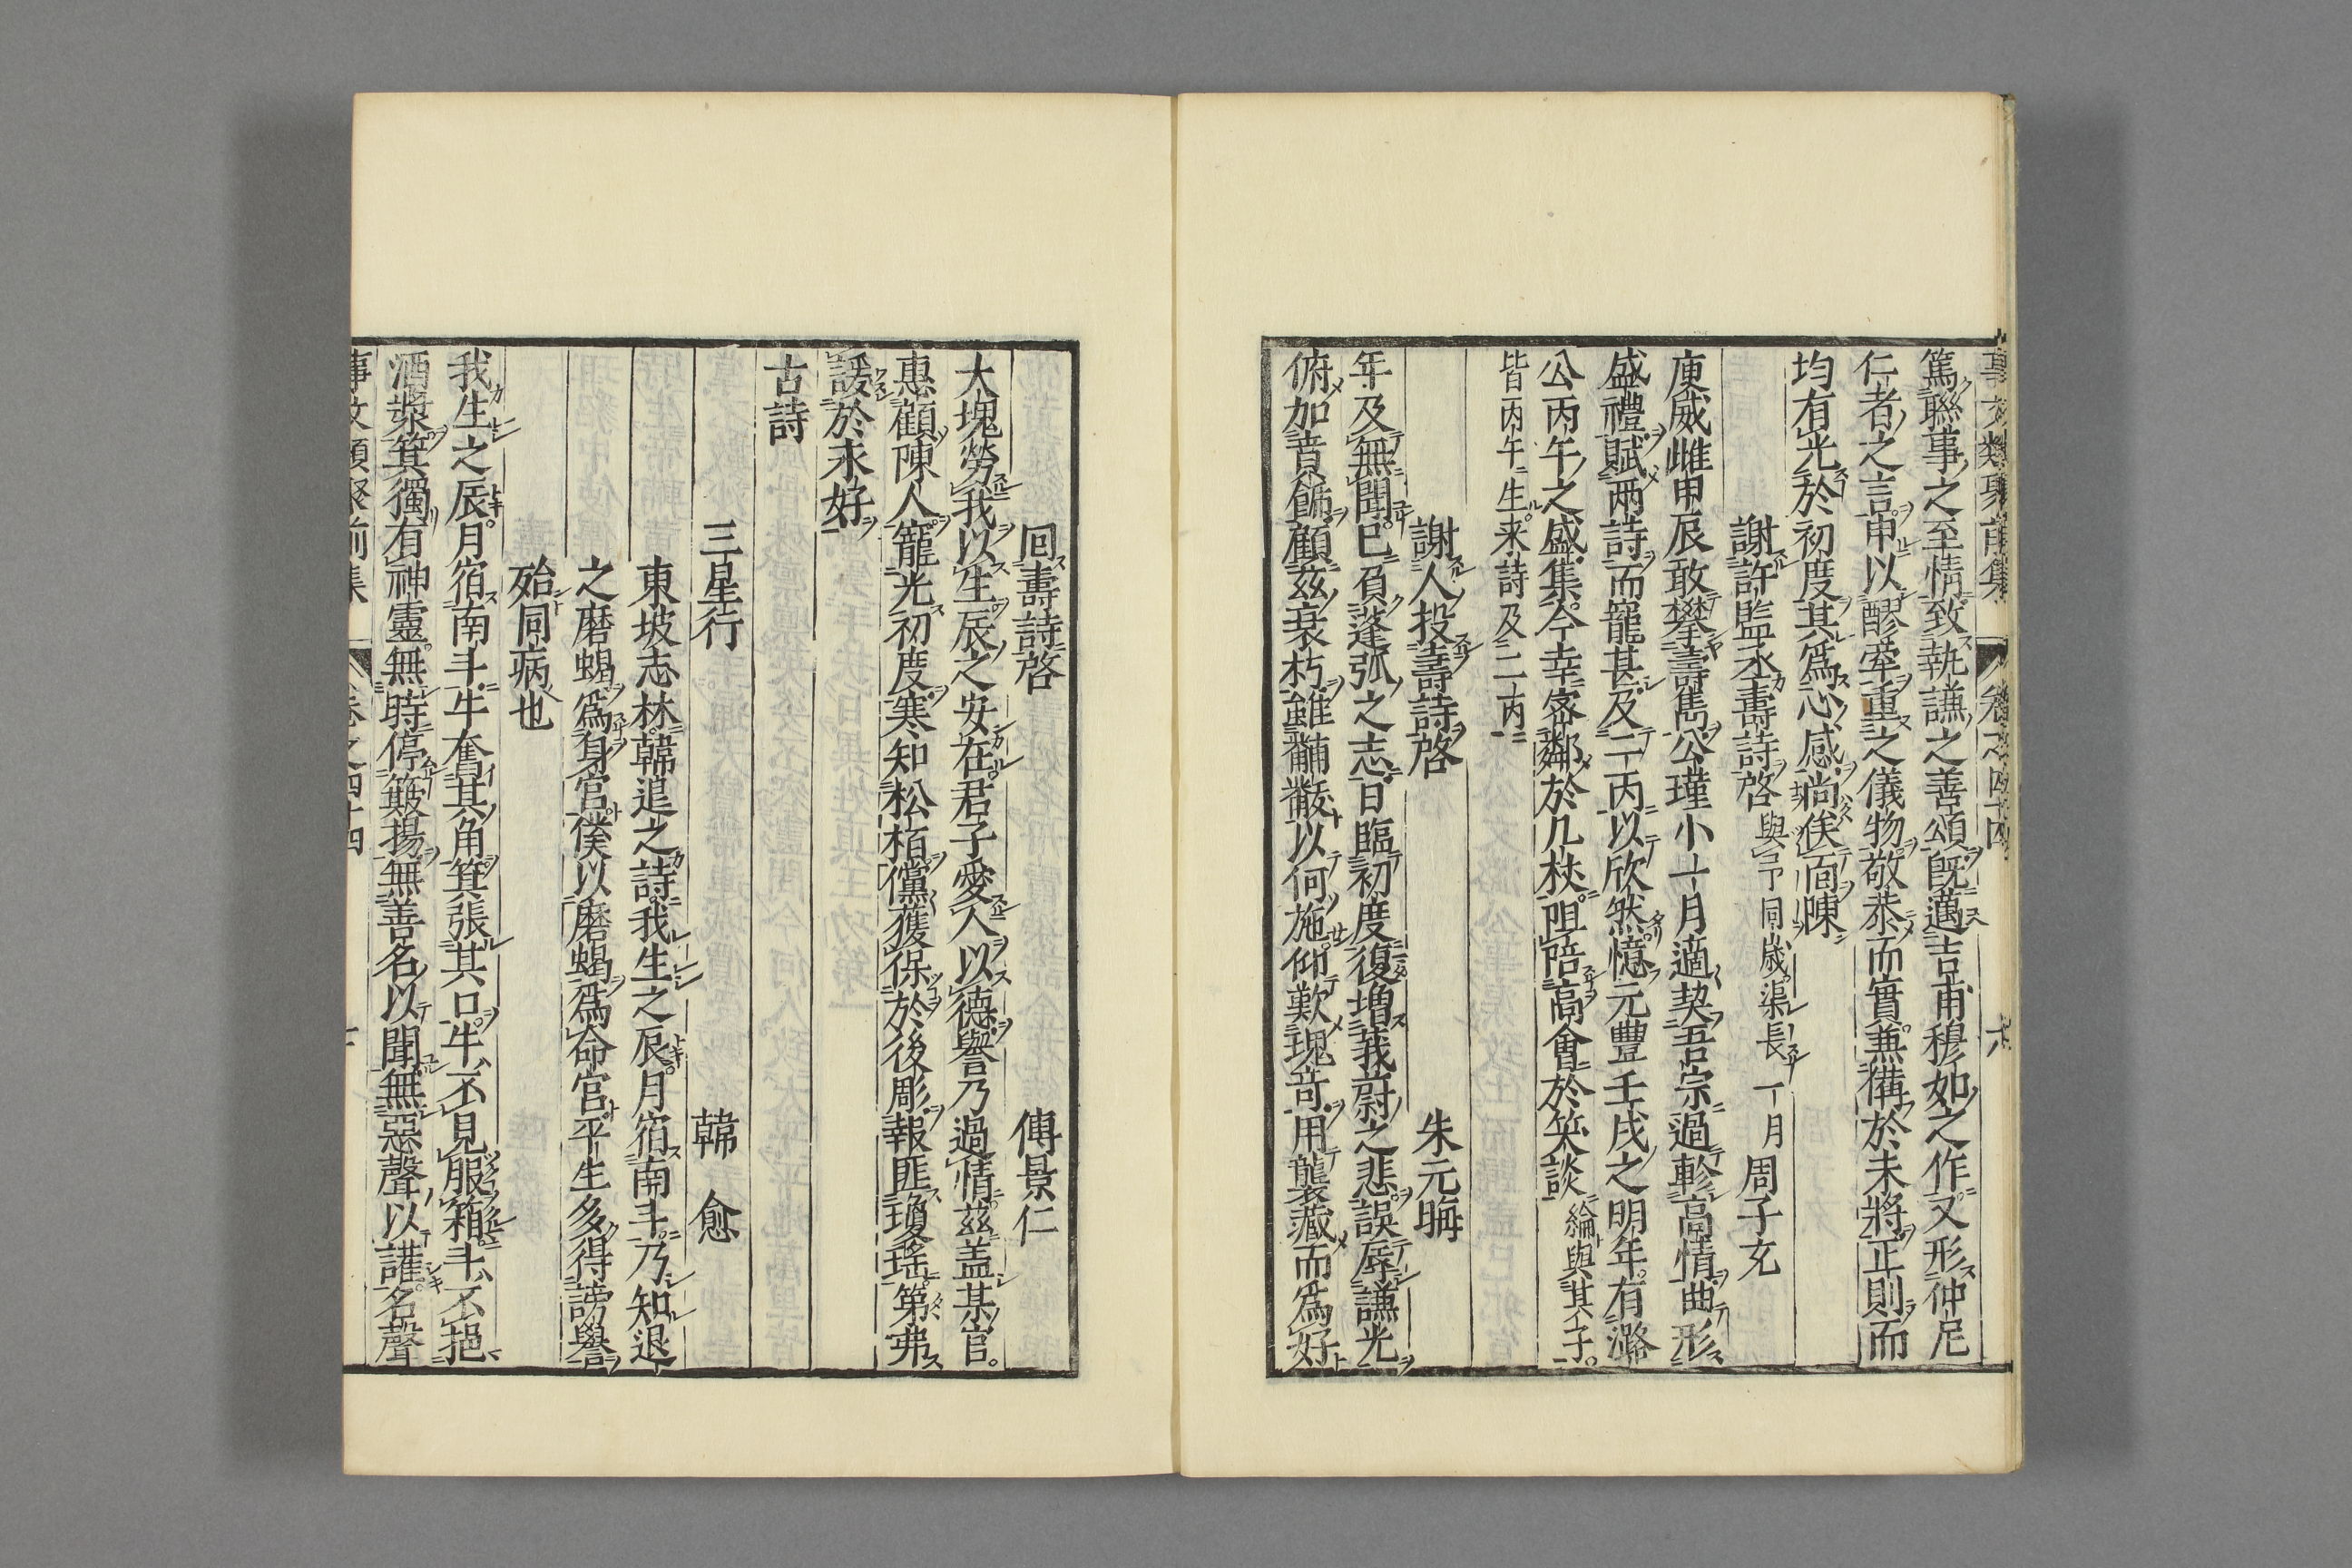 事文類聚前集 卷之四十四 六
篤聯事之至情致執謙之善頌旣邁吉甫穆如之作又形仲尼
仁者之言申以醪牽重之儀物敬恭而實兼備於未將正則而
均有光於初度其爲心感尚俟面陳
謝許監丞壽詩啓 與予同歲渠長一月 周子充
庚威雌甲辰敢攀壽雋公瑾小一月適契吾宗過軫高情曲形
盛禮賦两詩而寵甚及二丙以欣然憶元豐壬戌之明年有潞
公丙午之盛集今幸客鄰於几杖阻陪高會於笑談 綸與其子
皆丙午生来詩及二丙
謝人投壽詩啓 朱元晦
年及無聞已負蓬弧之志日臨初度復增莪蔚之悲誤辱謙光
俯加音餙顧茲衰朽雖黼黻以何施仰歎瑰竒用襲藏而爲好
回壽詩啓 傅景仁
大塊勞我以生辰之安在君子愛人以德譽乃過情茲盖某官
惠顧陳人寵光初度寒知松栢儻獲保於後彫報匪瓊瑤第弗
諼於永好
古詩
三星行 韓愈
東坡志林韓退之詩我生之辰月宿南斗乃知退
之磨蝎爲身官僕以磨蝎爲命官平生多得謗譽
殆同病也
我生之辰月宿南斗牛奮其角箕張其口牛不見服箱斗不挹
酒漿箕獨有神靈無時停簸揚無善名以聞無惡聲以讙名聲
事文類聚前集 卷之四十四